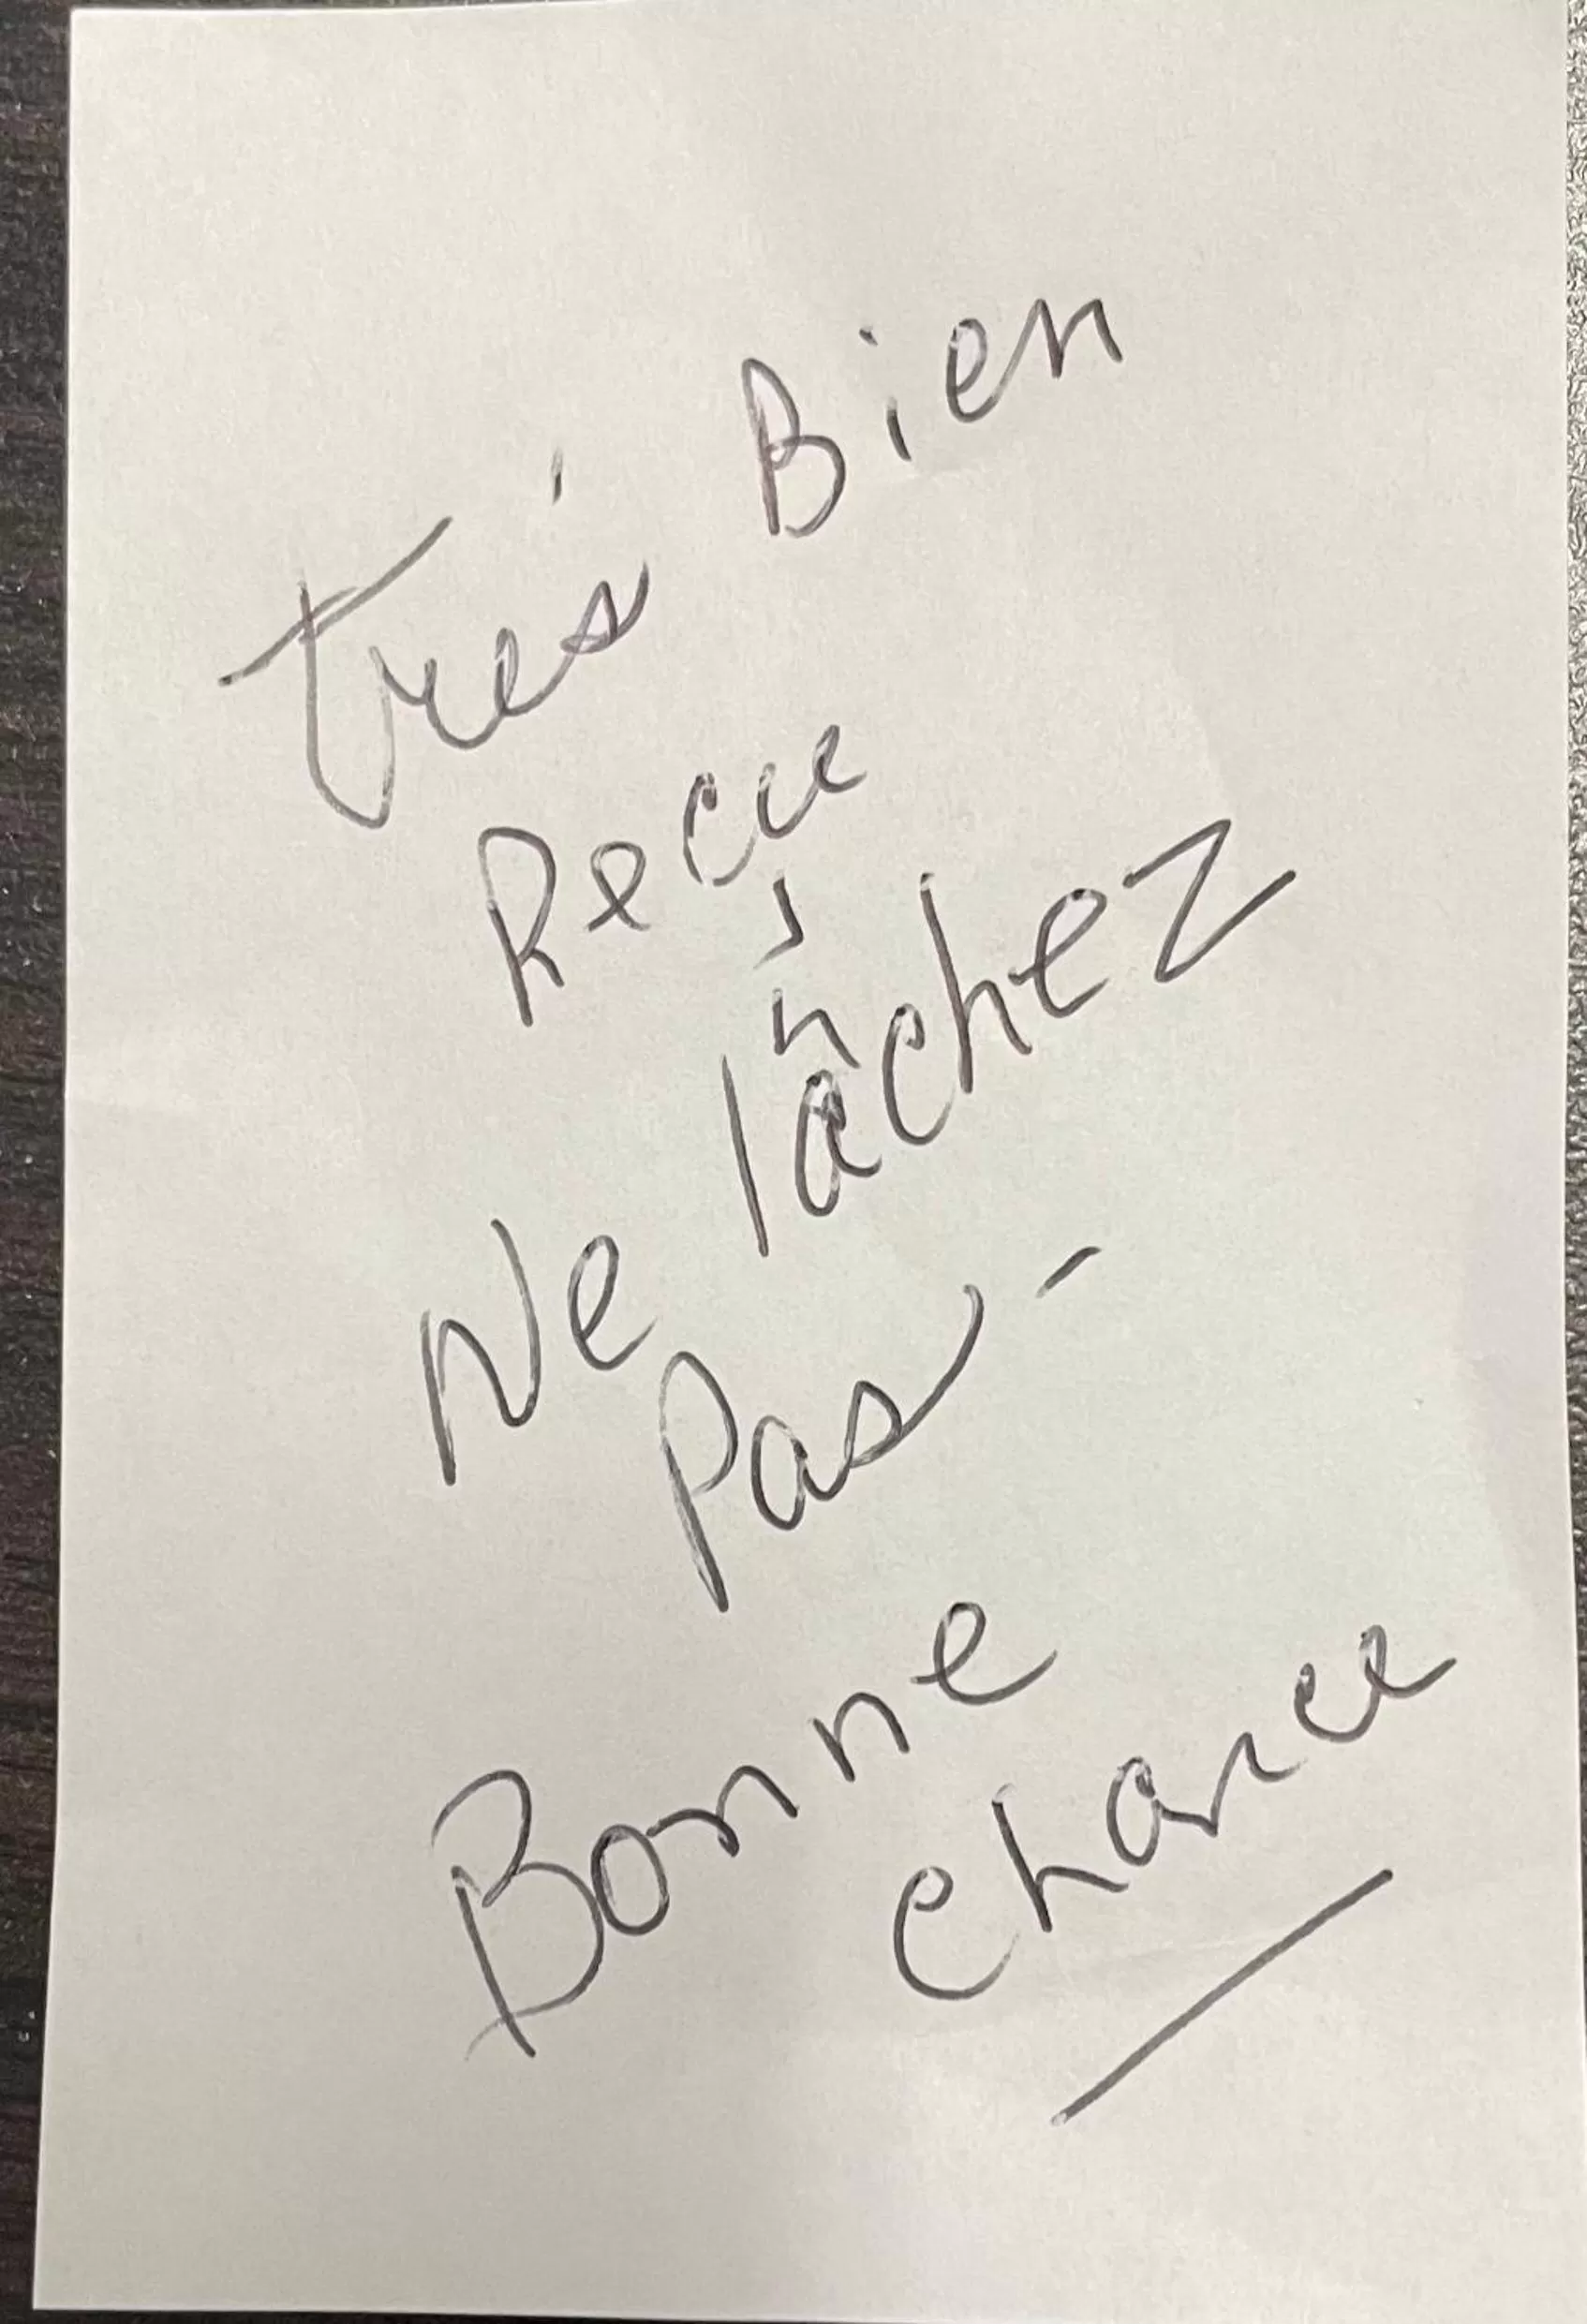 Très Bien
Reçu
Ne lâchez
Pas -
Bonne
chance